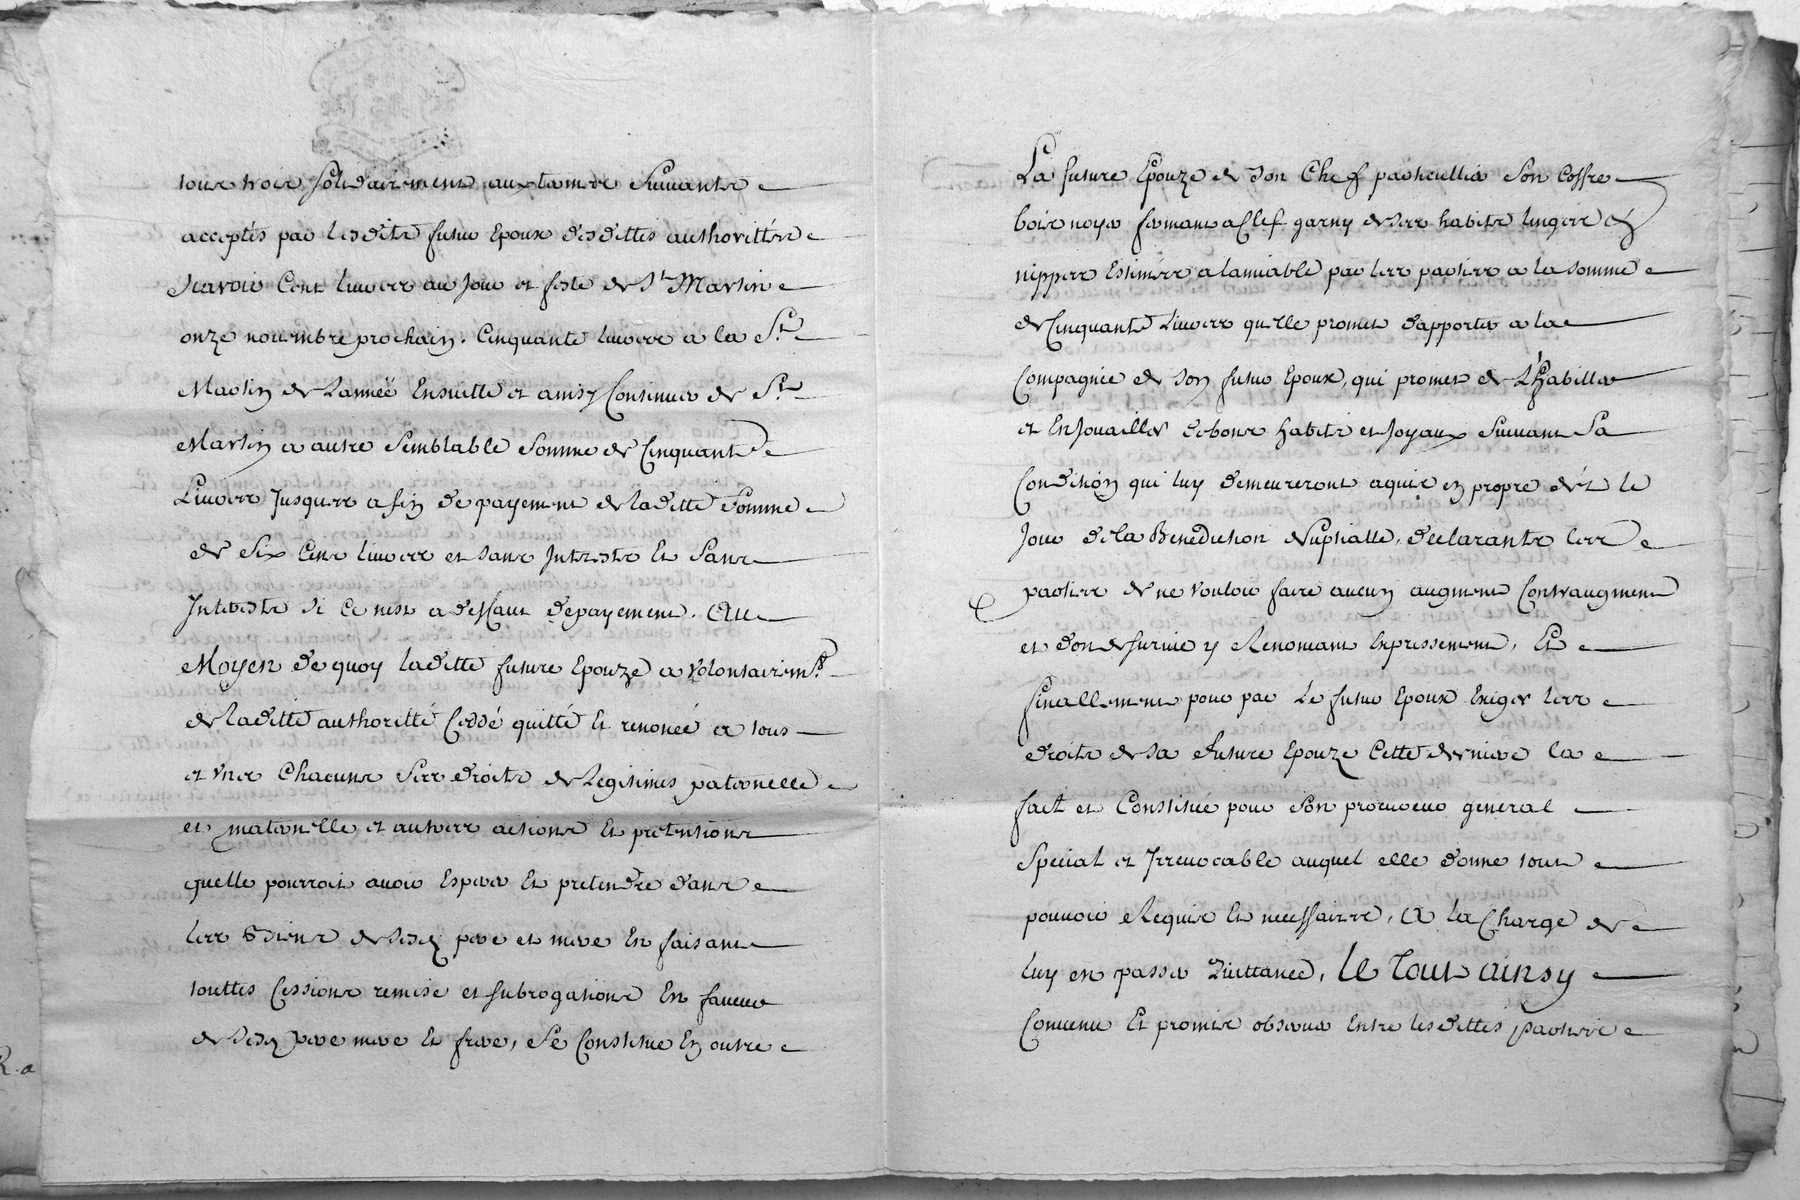 tous trois solidairement aux termes suivants
acceptés par lesdits futur Epoux desdittes authorittés
scavoir Cent livres au jour et feste de St Martin
onze nouembre prochain. Cinquante livres a la St
Martin de Lannéé Ensuitte et ainsy Continuer de St
Martin a autre Semblable Somme de Cinquante
Livres Jusques a fin de payement de laditte Somme
de Six Cens livres et sans Interests Et Sans
Interests si ce nest a deffaut depayement. Au
Moyen de quoy laditte future Epouze a volontairemt
de laditte authoritté Ceddé quitté Et renoncé a tous
et vns Chacuns Ses droits de Legitimes paternelle
et maternelle et autres actions Et pretentions
quelle pourroit avoir Esperer Et pretendre dans
les Biens de Sesd. pere et mere En faisant
touttes Cessions remise et subrogations En faveur
de Sesd. pere mere Et frere, Se Constitue En outre
La future Epouze de son Chef particullier Son Coffre
bois noyer fermant a Clef garny de Ses habits linges Et
nippes Estimées a lamiable par les parties a la somme
de Cinquante Livres quelle promet dapporter a la
Compagnie de son futur Epoux, qui promet de L'habiller
et Enjouailler de bons habits et Joyaux Suivant Sa
Condition qui luy demeureront aquis en propre dés le
Jour de la Benediction Nuptialle, declarants les
parties de ne vouloir faire aucun augment Contraugment
et don de survie y Renoncant Expressement, Et
finallement pour par Le futur Epoux Exiger les
droits de sa future Epouze Cette derniere la
fait et Constitué pour Son procureur general
Special et Irreuocable auquel elle donne tout
pouvoir Requis Et necessaires, A la Charge de
luy en passer Quittance, Le Tout ainsy
Convenu Et promis observer Entre lesdittes parties